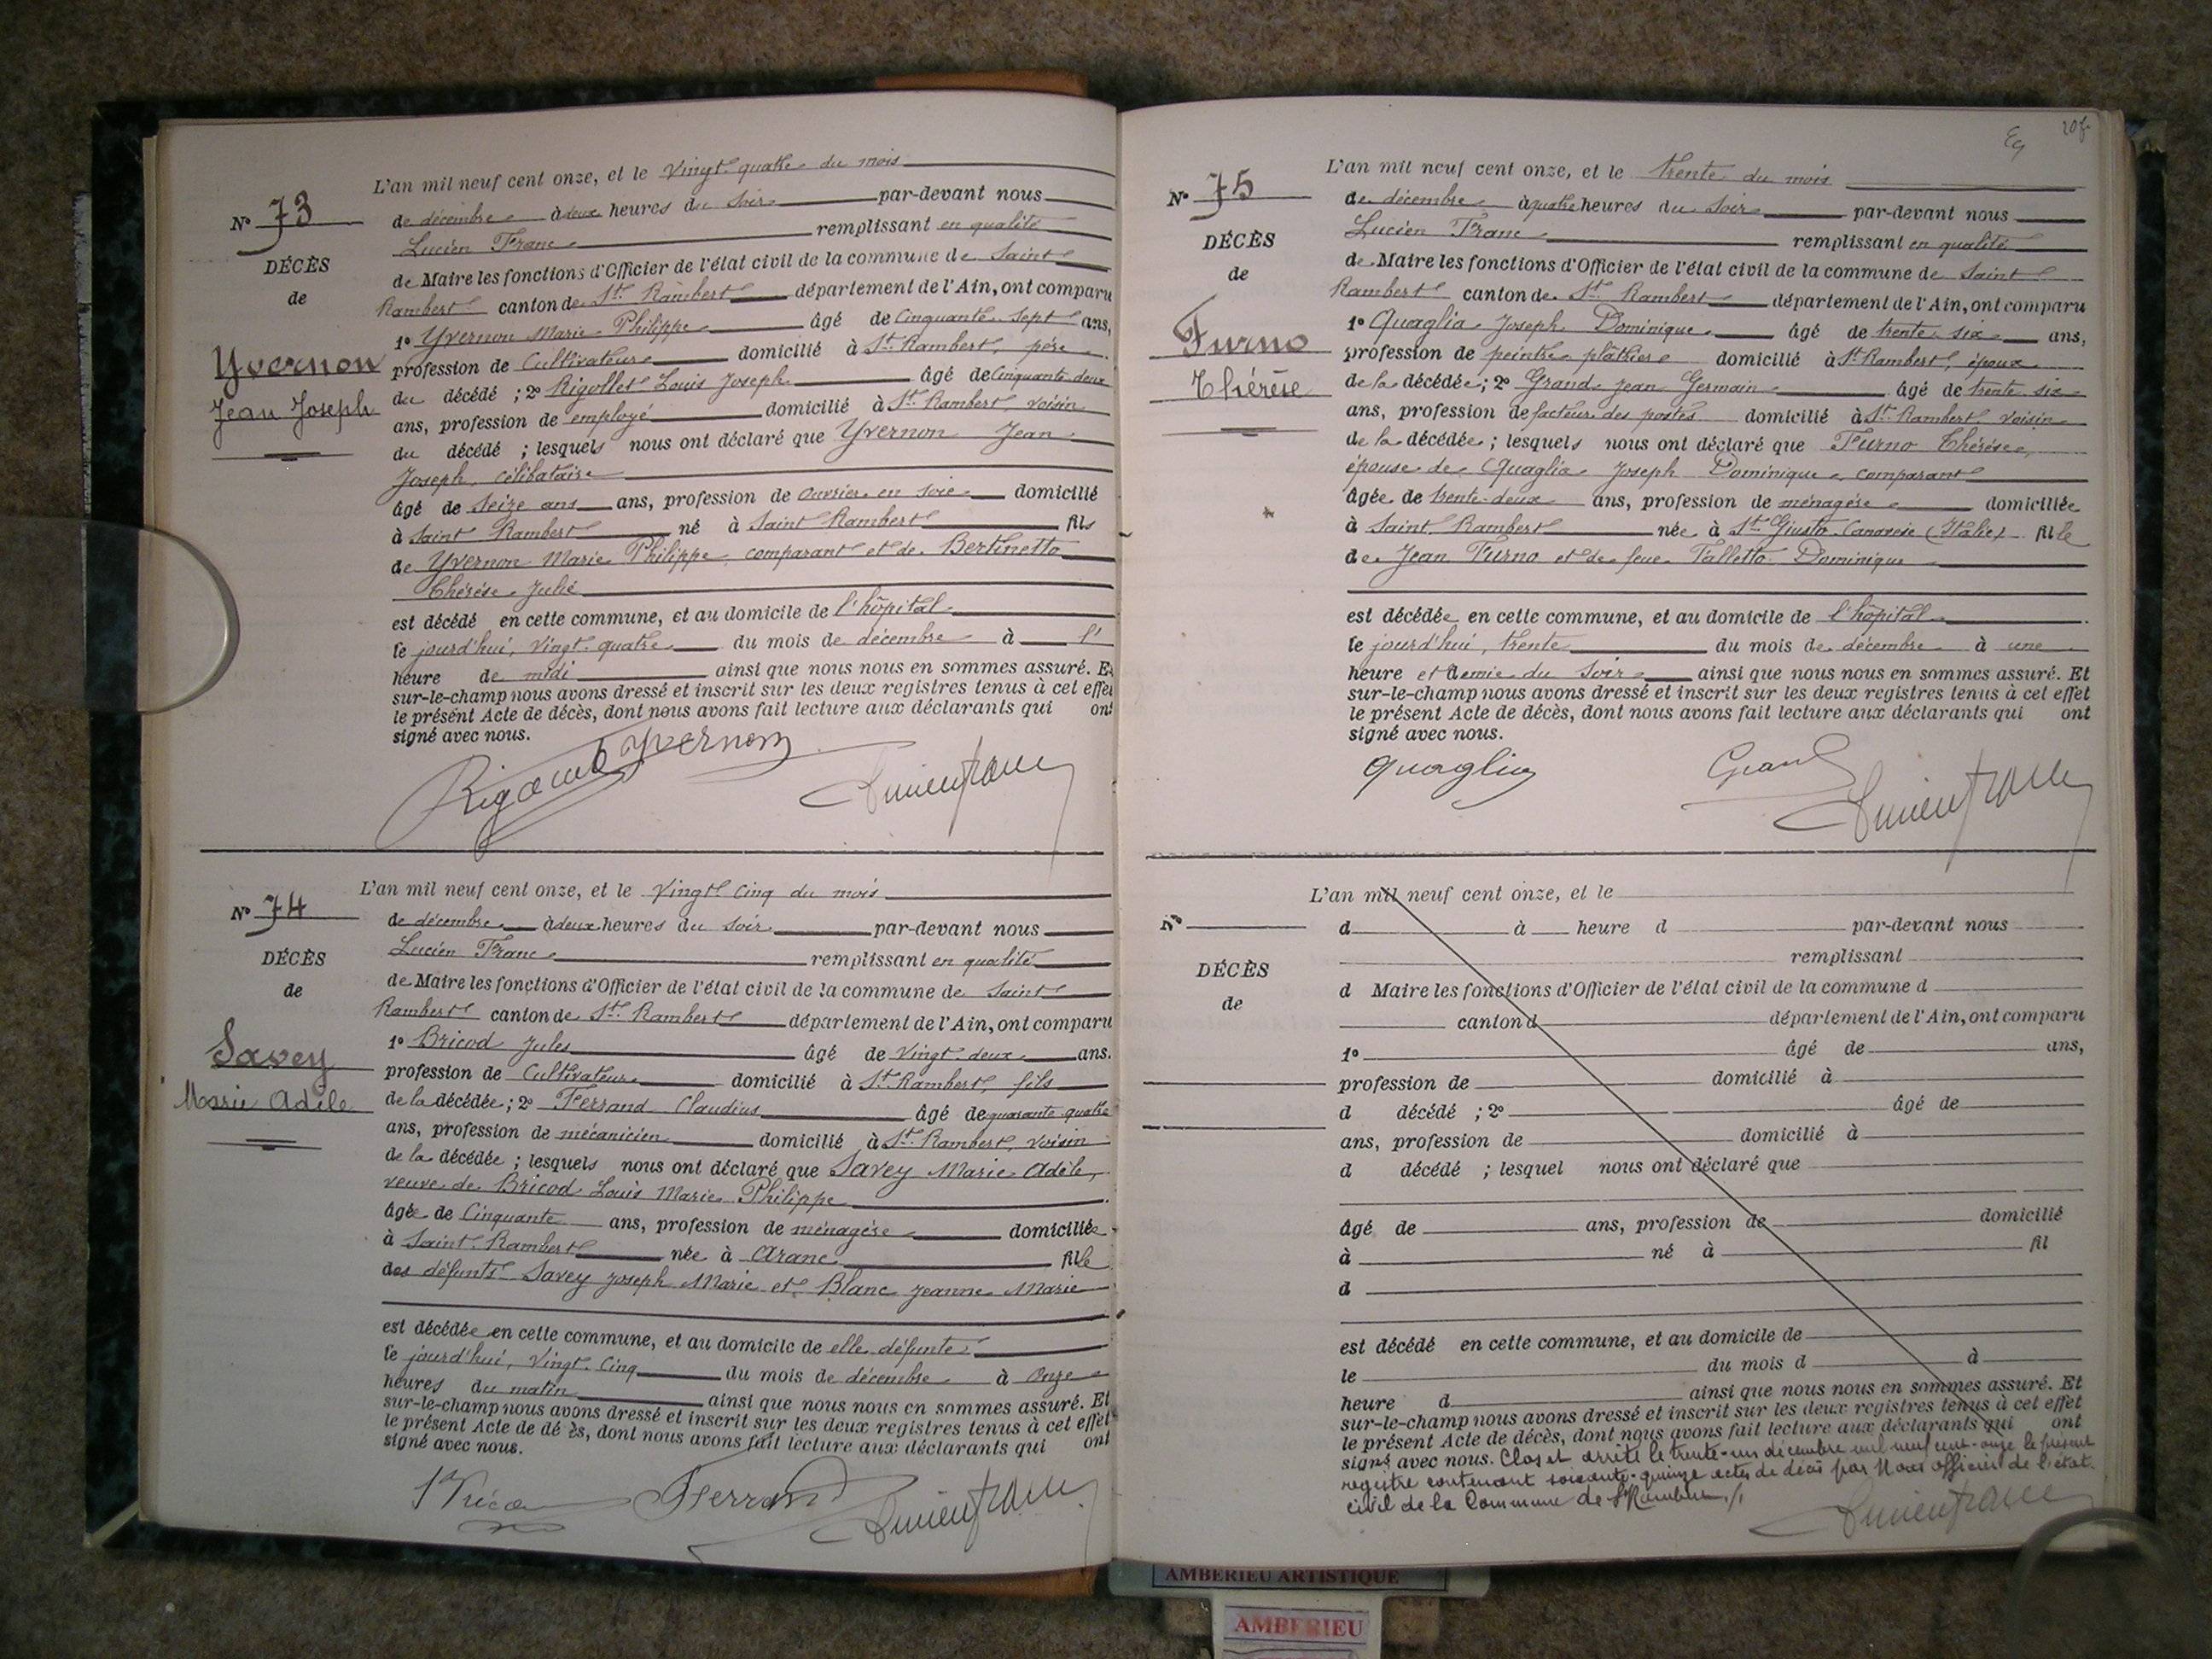 L'an mil neuf cent onze, et le vingt quatre du mois
Nº 73
de décembre à deux heures du soir par-devant nous
Lucien Franc remplissant en qualité
DÉCÈS
de
de Maire les fonctions d'Officier de l'état civil de la commune de Saint
Rambert canton de St. Rambert département de l'Ain, ont comparu
1º Yvernon Marie Philippe âgé de cinquante sept ans,
Yvernon
Jean Joseph
profession de cultivateur domicilié à St. Rambert, père
du décédé ; 2º Rigollet Louis Joseph âgé de cinquante deux
ans, profession de employé domicilié à St. Rambert, voisin
du décédé ; lesquels nous ont déclaré que Yvernon Jean
Joseph, célibataire
âgé de seize ans ans, profession de ouvrier en soie domicilié
à Saint Rambert né à Saint Rambert fils
de Yvernon Marie Philippe comparant et de Bertinetto
Thérèse Julie
est décédé en cette commune, et au domicile de l'hôpital
le jourd'hui, vingt quatre du mois de décembre à l'
heure de midi ainsi que nous nous en sommes assuré. Et
sur-le-champ nous avons dressé et inscrit sur les deux registres tenus à cet effet
le présent Acte de décès, dont nous avons fait lecture aux déclarants qui ont
signé avec nous.
Yvernon
Lucien Franc
L'an mil neuf cent onze, et le vingt cinq du mois
Nº 74
de décembre à deux heures du soir par-devant nous
Lucien Franc remplissant en qualité
DÉCÈS
de
de Maire les fonctions d'Officier de l'état civil de la commune de Saint
Rambert canton de St. Rambert département de l'Ain, ont comparu
1º Bricod Jules âgé de vingt deux ans.
Savey
Marie Adèle
profession de cultivateur domicilié à St. Rambert, fils
de la décédée ; 2º Ferrand Claudius âgé de quarante quatre
ans, profession de mécanicien domicilié à St. Rambert, voisin
de la décédée ; lesquels nous ont déclaré que Savey Marie Adèle,
veuve de Bricod Louis Marie Philippe
âgée de cinquante ans, profession de ménagère domiciliée
à Saint Rambert née à Aranc fille
des défunts Savey Joseph Marie et Blanc Jeanne Marie
est décédée en cette commune, et au domicile de elle défunte
le jourd'hui, vingt cinq du mois de décembre à onze
heures du matin ainsi que nous nous en sommes assuré. Et
sur-le-champ nous avons dressé et inscrit sur les deux registres tenus à cet effet
le présent Acte de dé ès, dont nous avons fait lecture aux déclarants qui ont
signé avec nous.
Ferrand
Lucien Franc
L'an mil neuf cent onze, et le trente du mois
Nº 75
de décembre à quatre heures du soir par-devant nous
Lucien Franc remplissant en qualité
DÉCÈS
de
de Maire les fonctions d'Officier de l'état civil de la commune de Saint
Rambert canton de St. Rambert département de l'Ain, ont comparu
1º Quaglia Joseph Dominique âgé de trente six ans,
Furno
Thérèse
profession de peintre plâtrier domicilié à St. Rambert, époux
de la décédée ; 2º Grand Jean Germain âgé de trente six
ans, profession de facteur des postes domicilié à St. Rambert voisin
de la décédée ; lesquels nous ont déclaré que Furno Thérèse,
épouse de Quaglia Joseph Dominique comparant
âgée de trente deux ans, profession de ménagère domiciliée
à Saint Rambert née à St Giusto Canavese (Italie) fille
de Jean Furno et de feue Talletto Dominique
est décédée en cette commune, et au domicile de l'hôpital
le jourd'hui, trente du mois de décembre à une
heure et demie du soir ainsi que nous nous en sommes assuré. Et
sur-le-champ nous avons dressé et inscrit sur les deux registres tenus à cet effet
le présent Acte de décès, dont nous avons fait lecture aux déclarants qui ont
signé avec nous.
Quaglia Grand
Lucien Franc
L'an mil neuf cent onze, et le
Nº
d à heure d par-devant nous
remplissant
DÉCÈS
de
d Maire les fonctions d'Officier de l'état civil de la commune d
canton d département de l'Ain, ont comparu
1º âgé de ans,
profession de domicilié à
d décédé ; 2º âgé de
ans, profession de domicilié à
d décédé ; lesquel nous ont déclaré que
âgé de ans, profession de domicilié
à né à fil
d
est décédé en cette commune, et au domicile de
le du mois d à
heure d ainsi que nous nous en sommes assuré. Et
sur-le-champ nous avons dressé et inscrit sur les deux registres tenus à cet effet
le présent Acte de décès, dont nous avons fait lecture aux déclarants qui ont
signé avec nous. Clos et arrêté le trente-un décembre mil neuf cent onze le présent
registre contenant soixante-quinze actes de décès par Nous officier de l'état
civil de la Commune de St Rambert
Lucien Franc
AMBERIEU ARTISTIQUE
AMBERIEU